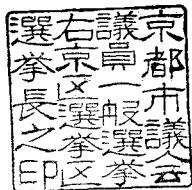 京都市議会
議員一般選挙
右京区選挙区
選挙長之印